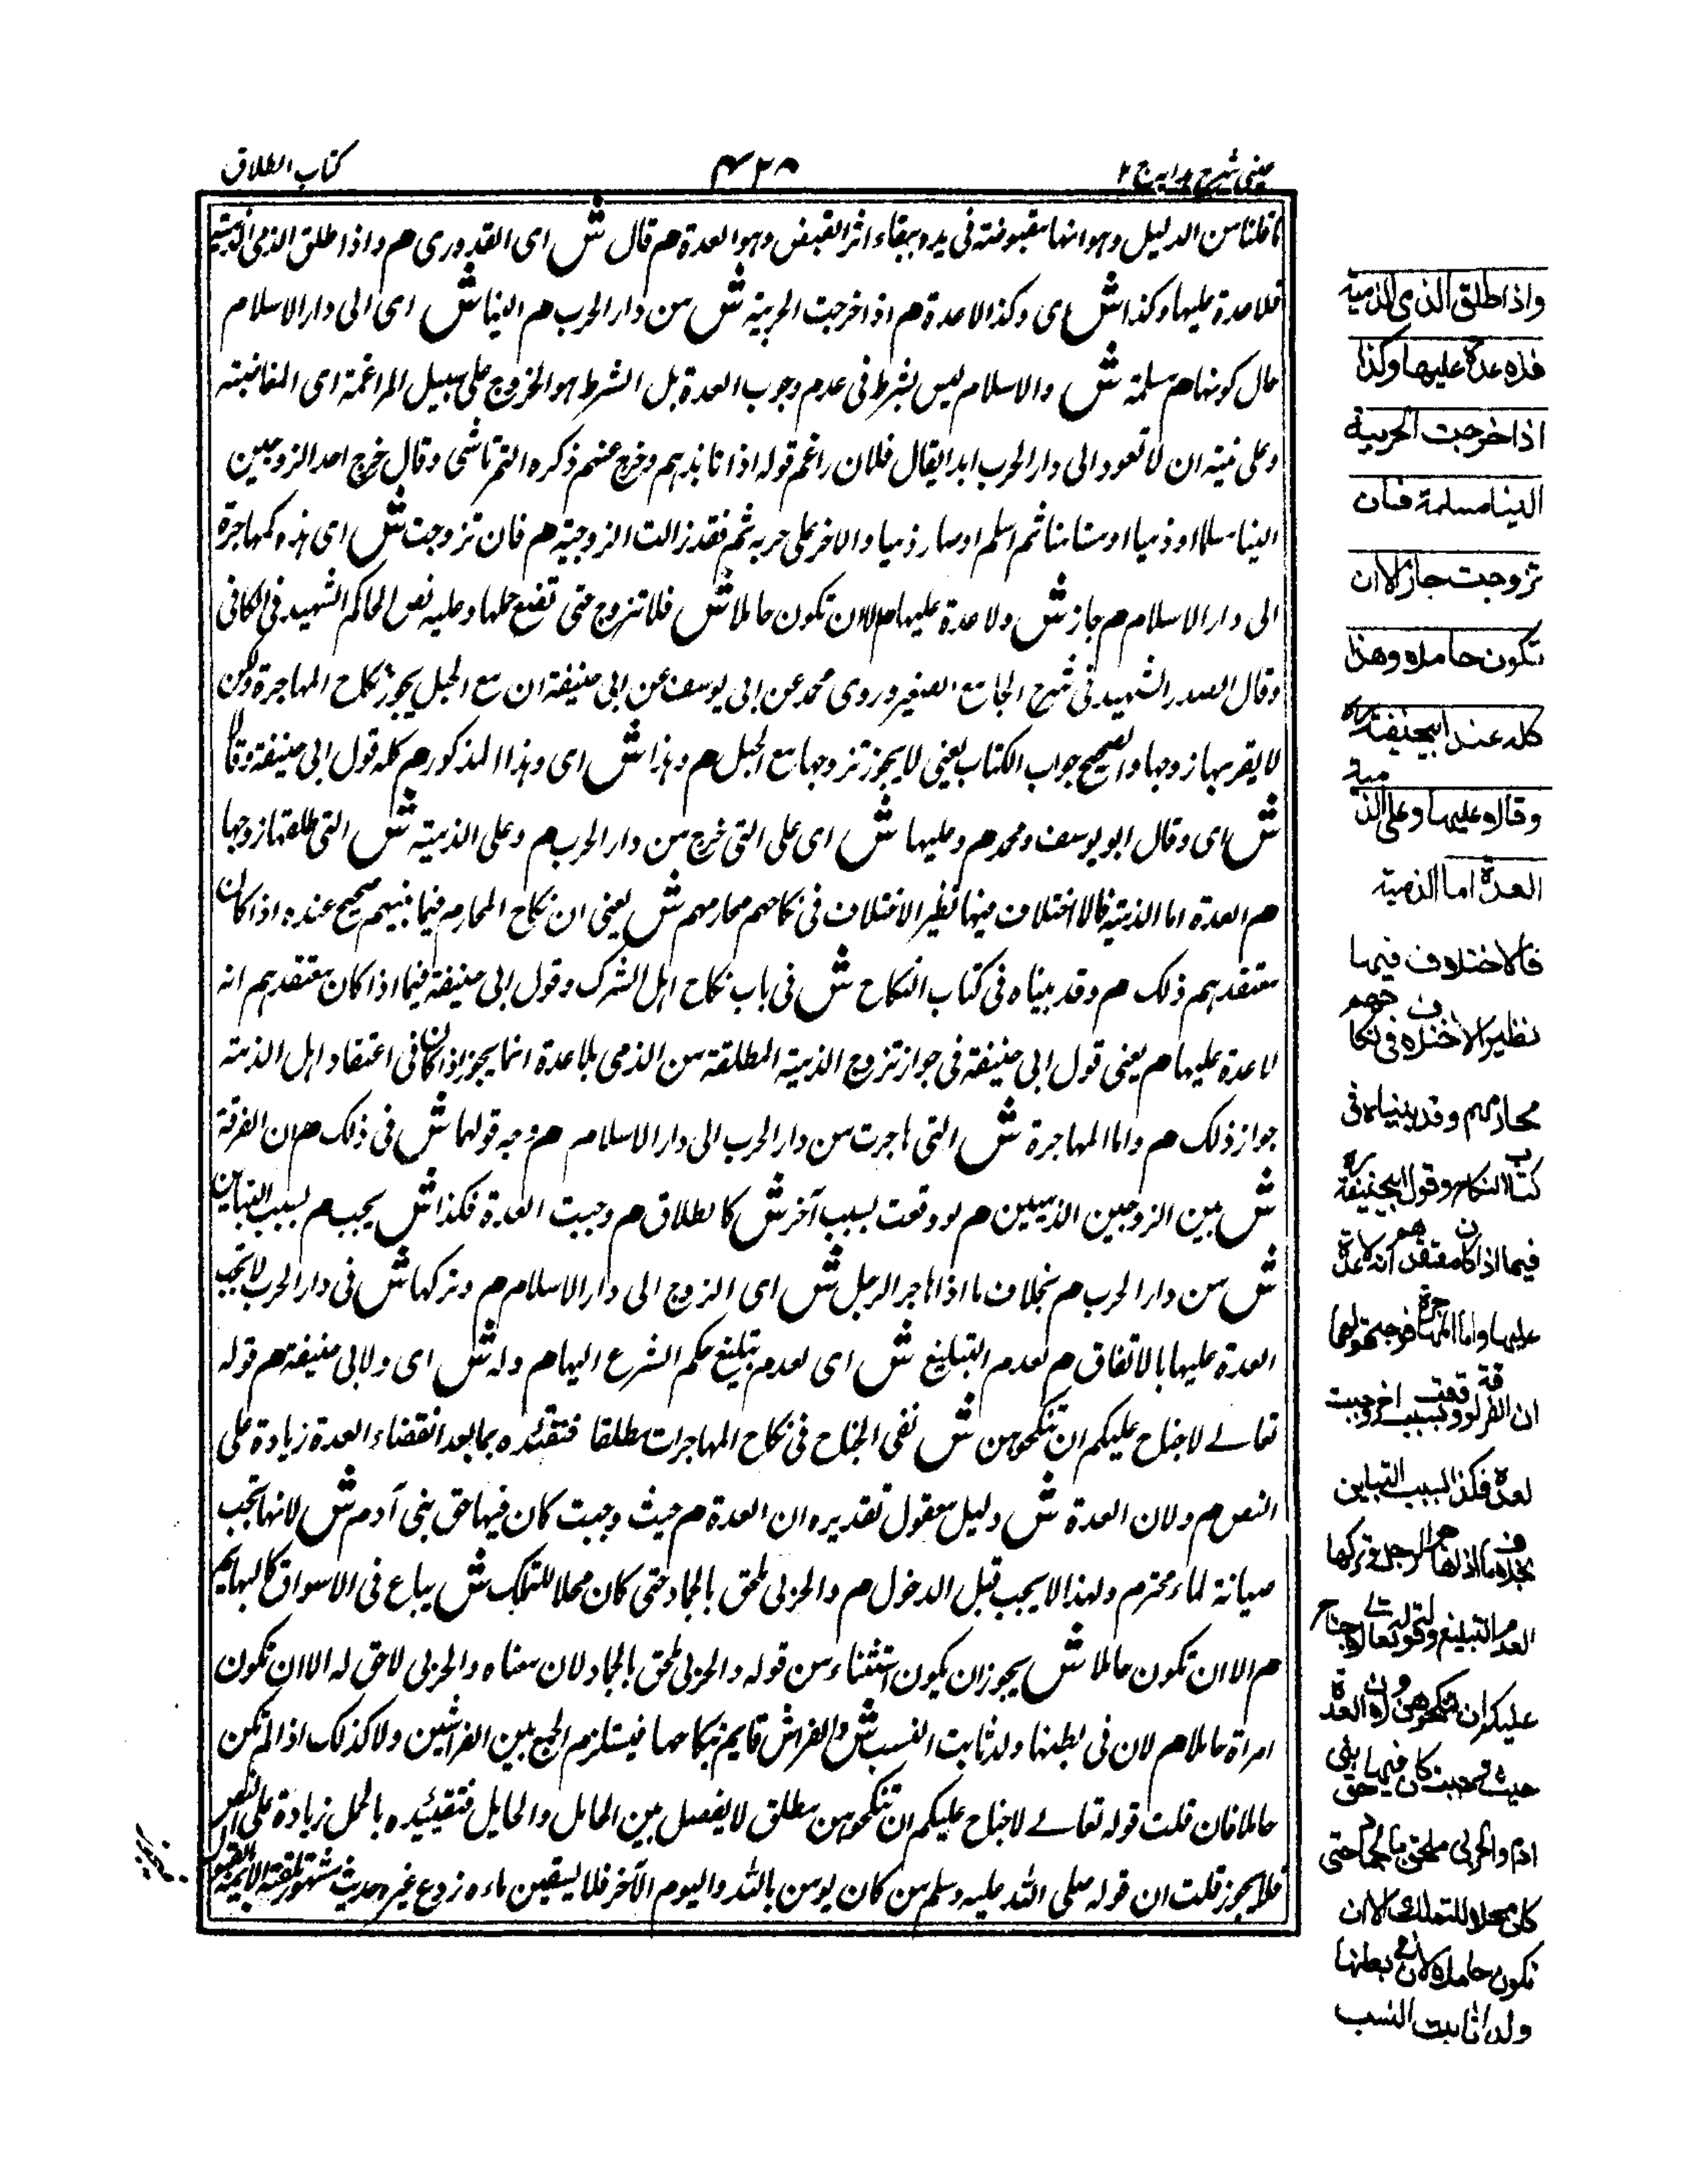 عینی شرح ہدایہ ج ۲
۴۲۸
کتاب الطلاق
ما قلنا من الدلیل وہو انہا مقبوضتہ فی یدہ ببقاء اثر القبض وہو العدۃ م قال ش ای القدوری م واذا طلق الذمی الذمیۃ
فلا عدۃ علیہا وکذا ش ای وکذا لا عدۃ م اذا خرجت الحربیۃ ش من دار الحرب م الینا ش ای الی دار الاسلام
حال کونہا م مسلمۃ ش والاسلام لیس بشرط فی عدم وجوب العدۃ بل الشرط ہو الخروج علی سبیل المراغمۃ ای المغاضبتہ
وعلی نیتہ ان لا تعود الی دار الحرب ابدا یقال فلان راغم قولہ اذا نابذہم وخرج عنہم ذکرہ التمرتاشی وقال خرج احد الزوجین
الینا مسلما او ذمیا او مستامنا ثم اسلم او صار ذمیا والاخر علی حربہ ثم فقد زالت الزوجیۃ م فان تزوجت ش ای ہذہ کمہاجرۃ
الی دار الاسلام م جاز ش ولا عدۃ علیہا م الا ان تکون حاملا ش فلا تتزوج حتی تضع حملہا وعلیہ نص الحاکم الشہید فی الکافی
وقال الصدر الشہید فی شرح الجامع الصغیر وروی محمد عن ابی یوسف عن ابی حنیفۃ ان مع الحبل یجوز نکاح المہاجرۃ ولکن
لا یقربہا زوجہا والصحیح جواب الکتاب یعنی لا یجوز تزوجہا مع الحبل م وہذا ش ای وہذا المذکور م کلہ قول ابی حنیفۃ وقالا
ش ای وقال ابو یوسف ومحمد م وعلیہا ش ای علی التی خرج من دار الحرب م وعلی الذمیۃ ش التی طلقہا زوجہا
م العدۃ اما الذمیۃ فالاختلاف فیہا نظیر الاختلاف فی نکاحہم محارمہم ش یعنی ان نکاح المحارم فیما بینہم صحیح عندہ اذا کان
معتقدہم ذلک م وقد بیناہ فی کتاب النکاح ش فی باب نکاح اہل الشرک وقول ابی حنیفۃ فیما اذا کان معتقدہم انہ
لا عدۃ علیہا م یعنی قول ابی حنیفۃ فی جواز تزوج الذمیۃ المطلقۃ من الذمی بلا عدۃ انما یجوز اذا کان فی اعتقاد اہل الذمۃ
جواز ذلک م واما المہاجرۃ ش التی ہاجرت من دار الحرب الی دار الاسلام م وجہ قولہا ش فی ذلک م ان الفرقۃ
ش بین الزوجین الذمیین م لو وقعت بسبب آخر ش کالطلاق م وجبت العدۃ فکذا ش یجب م بسبب التباین
ش من دار الحرب م بخلاف ما اذا ہاجر الرجل ش ای الزوج الی دار الاسلام م وترکہا ش فی دار الحرب لا تجب
العدۃ علیہا بالاتفاق م لعدم التبلیغ ش ای لعدم تبلیغ حکم الشرع الیہا م ولہ ش ای ولابی حنیفۃ م قولہ
تعالے لا جناح علیکم ان تنکحوہن ش نفی الجناح فی نکاح المہاجرات مطلقا فتقئیدہ بما بعد انقضاء العدۃ زیادۃ علی
النص م ولان العدۃ ش دلیل معقول تقدیرہ ان العدۃ م حیث وجبت کان فیہا حق بنی آدم ش لانہا تجب
صیانۃ لماء محترم ولہذا لا یجب قبل الدخول م والحربی ملحق بالجماد حتی کان محلا للتملک ش یباع فی الاسواق کالبہایم
م الا ان تکون حاملا ش یجوز ان یکون استثناء من قولہ والحربی ملحق بالجماد لان معناہ والحربی لا حق لہ الا ان تکون
امراۃ حاملا م لان فی بطنہا ولد ثابت النسب ش والفراش قایم بنکاحہا فیستلزم الجمع بین الفراشین ولا کذلک اذا لم تکن
حاملا فان قلت قولہ تعالے لا جناح علیکم ان تنکحوہن مطلق لا یفصل بین الحامل والحایل فتقیئیدہ بالحمل زیادۃ علی النص
فلا یجوز قلت ان قولہ صلی اللہ علیہ وسلم من کان یومن باللہ والیوم الآخر فلا یسقین ماءہ زرع غیرہ حدیث مشہور تلقتہ الایمۃ بالقبول
واذا طلق الذمی الذمیة
فلا عدة علیها وکذا
اذا خرجت الحربیة
الینا مسلمة فان
تزوجت جاز الا ان
تکون حاملا وهذا
کله عند ابیحنیفة رح
وقالا علیها وعلی الذمیة
العدة اما الذمیة
فالاختلاف فیها
نظیر الاختلاف فی نکاحهم
محارمهم وقد بیناه فی
کتاب النکاح وقول ابیحنیفة رح
فیما اذا کان معتقدهم انه لا عدة
علیها واما المهاجرة فوجه قولهما
ان الفرقة لو وقعت بسبب اخر وجبت
لعدة فکذا لسبب التباین
بخلاف ما اذا هاجر الرجل وترکها
لعدم التبلیغ وله قوله تعالے لا جناح
علیکم ان تنکحوهن ولان العدة
حیث وجبت کان فیها حق بنی
ادم والحربی ملحق بالجماد حتی
کان محلا للتملك الا ان
تکون حاملا لان فی بطنها
ولدا ثابت النسب